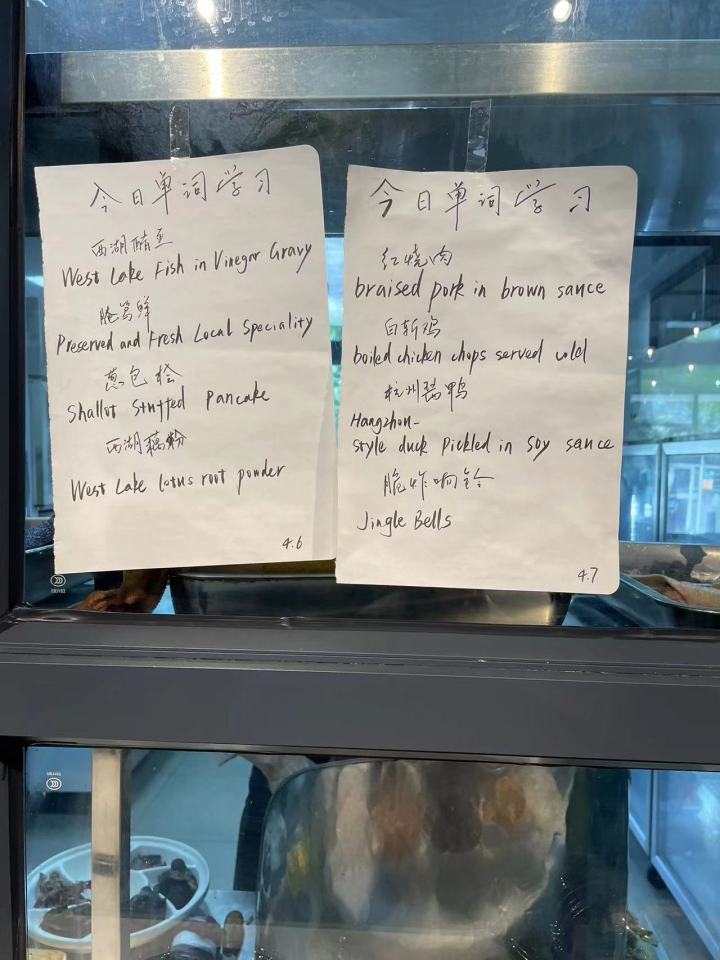 今日单词学习
西湖醋鱼
West Lake Fish in Vinegar Gravy
腌笃鲜
Preserved and Fresh Local Speciality
葱包桧
Shallot Stuffed Pancake
西湖藕粉
West Lake lotus root powder
4.6
今日单词学习
红烧肉
braised pork in brown sauce
白斩鸡
boiled chicken chops served cold
杭州酱鸭
Hangzhou-
style duck Pickled in Soy sauce
脆炸响铃
Jingle Bells
4.7